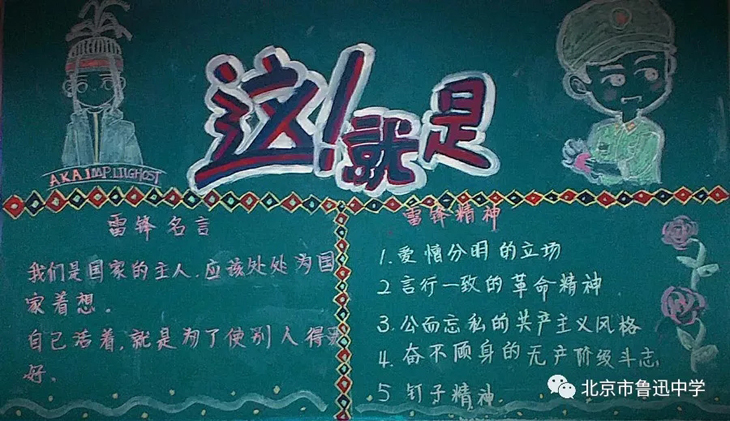 这！就是
AKAIMP LILGHOST
雷锋名言
我们是国家的主人,应该处处为国
家着想。
自己活着,就是为了使别人得更
好。
雷锋精神
1.爱憎分明的立场
2 言行一致的革命精神
3.公而忘私的共产主义风格
4.奋不顾身的无产阶级斗志
5 钉子精神
北京市鲁迅中学